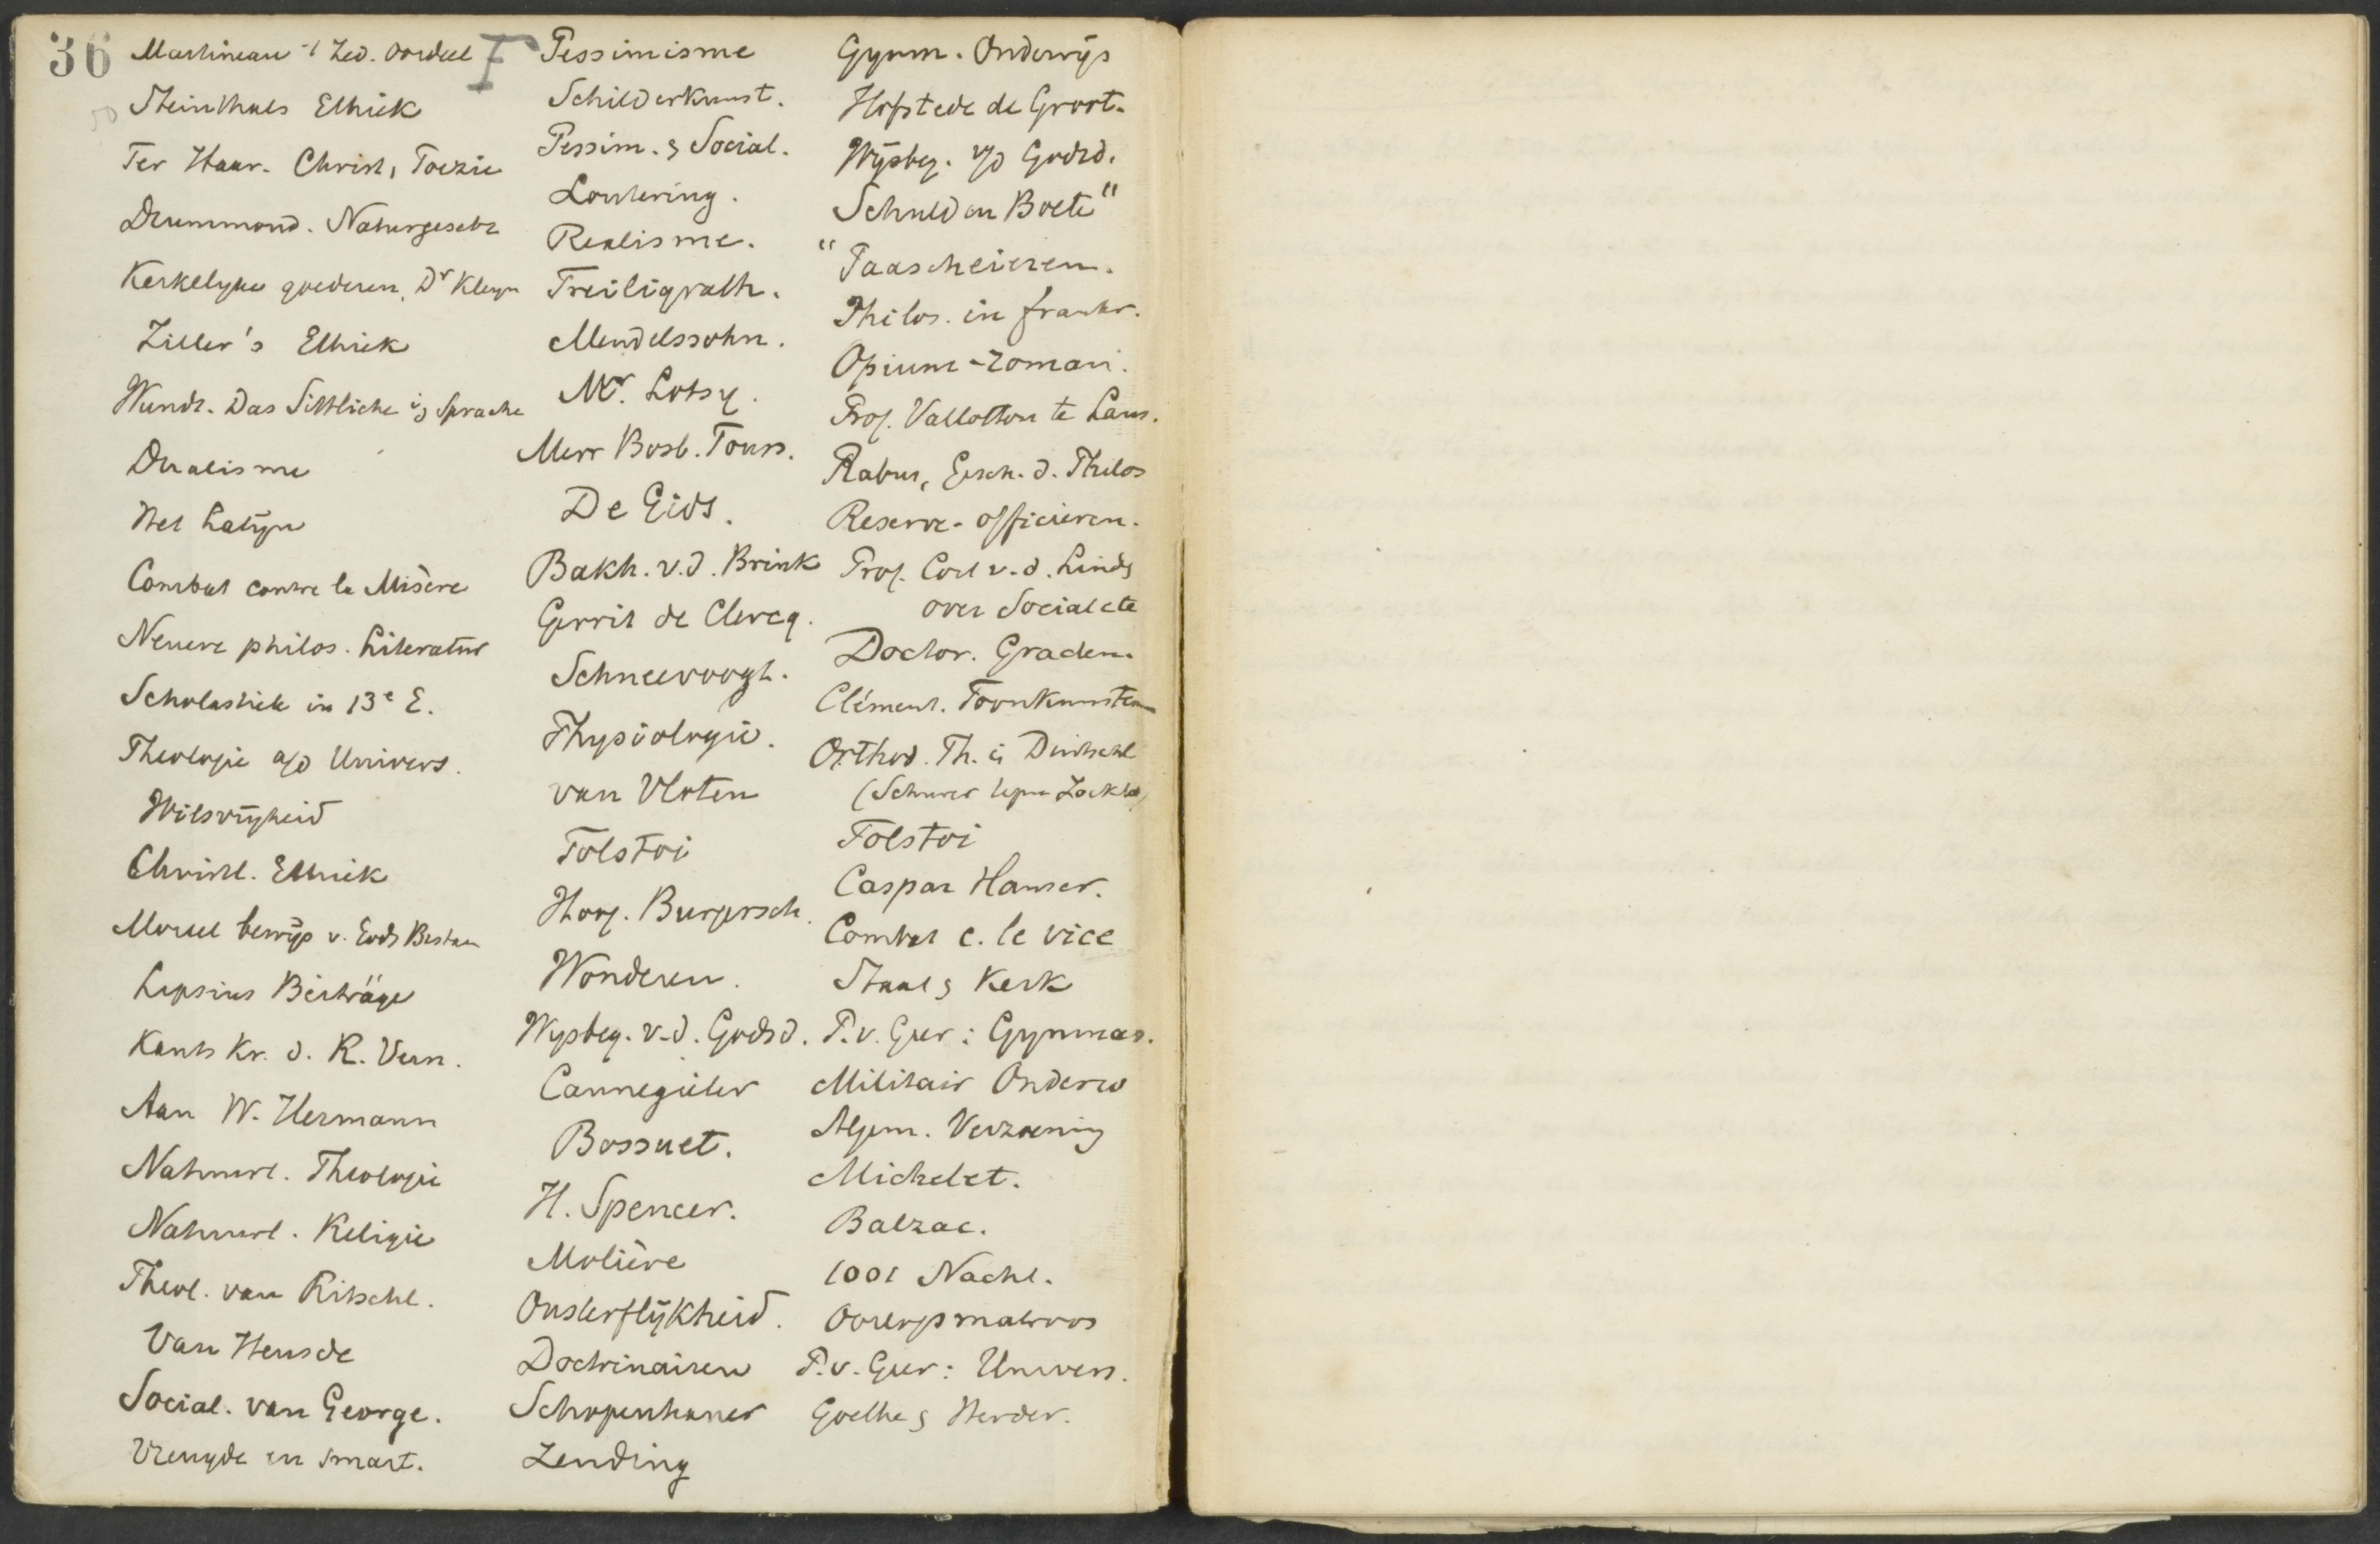 36
F
Martineau 't Zed. oordeel
Steinthals Ethiek
Ter Haar. Christ. Poëzie
Drummond. Naturgesetz
Kerkelyke goederen, Dr Kleyn
Ziller's Ethiek
Wundt. Das Sittliche i/d Sprache
Dualisme
Het Latijn
Combat contre la Misère
Neuere philos. Literatur
Scholastiek in 13e E.
Theologie a/d Univers.
Wilsvrijheid
Christl. Ethiek
Moreel bewijs v. Gods Bestaan
Lipsius Beiträge
Kants Kr. d. R. Vern.
Aan W. Hermann
Natuurl. Theologie
Natuurl. Religie
Theol. van Ritschl.
Van Heusde
Social. van George.
Vreugde en smart.
Pessimisme
Schilderkunst.
Pessim. & Social.
Loutering.
Realisme.
Freiligrath.
Mendelssohn.
Mr. Lotsy.
Mevr Bosb. Touss.
De Gids.
Bakh. v.d. Brink
Gerrit de Clercq.
Schneevoogt.
Physiologie.
van Vloten
Tolstoi
Hoog. Burgersch.
Wonderen.
Wysbeg. v.d. Godsd.
Cannegieter
Bossuet.
H. Spencer.
Molière
Onsterflijkheid.
Doctrinairen
Schopenhauer
Zending
Gymn. Onderwijs
Hofstede de Groot.
Wijsbeg. v/d Godsd.
Schuld en Boete"
"Paascheieren.
Philos. in frankr.
Opium-roman.
Prof. Vallotton te Laus.
Rabus, Gesch. d. Philos
Reserve-officieren.
Prof. Cort v.d. Linde
over Social etc
Doctor. Graden.
Clément. Toonkunsten
Orthod. Th. in Duitschl
(Schurer tegen Zöckler)
Tolstoi
Caspar Hauser.
Combat c. le vice
Staat & Kerk
P. v. Geer: Gymnas.
Militair Onderw
Algem. Verzoening
Michelet.
Balzac.
1001 Nacht.
Oorlogsmatroos
P. v. Geer: Univers.
Goethe & Herder.